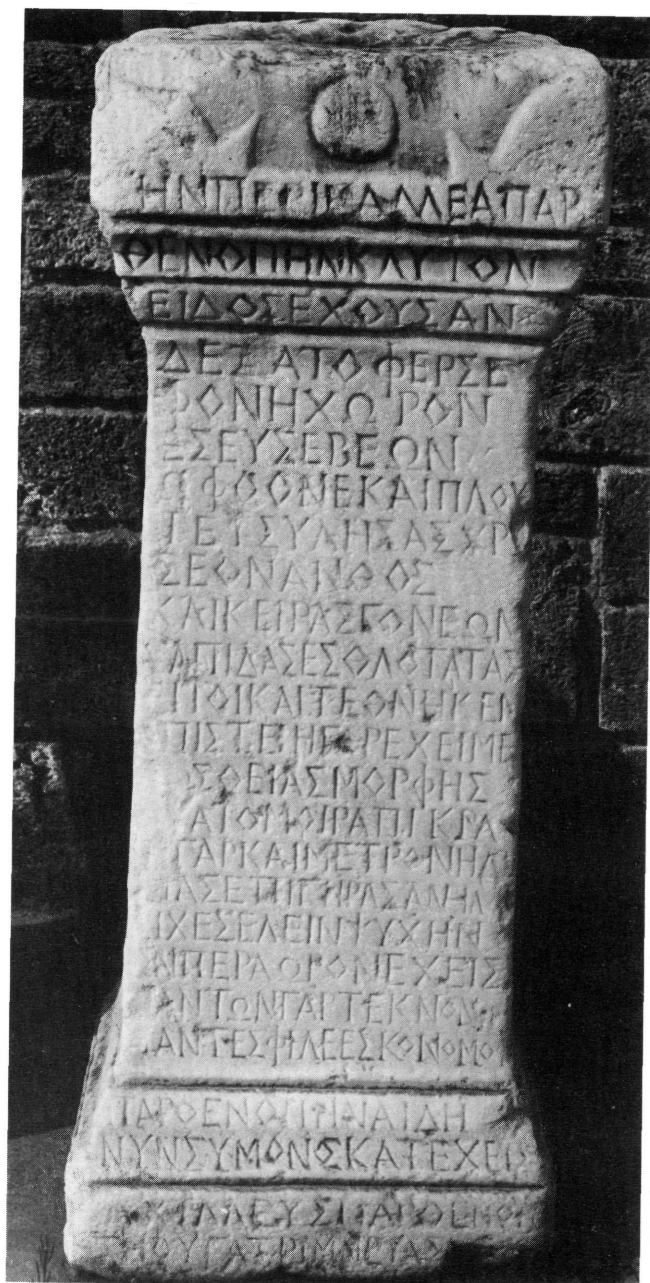 ΗΝΠΕΡΙΚΑΛΛΕΑΠΑΡ
ΘΕΝΟΠΗΝΚΛΥΤΟΝ
ΕΙΔΟΣΕΧΟΥΣΑΝ
ΔΕΞΑΤΟΦΕΡΣΕ
ΦΟΝΗΧΩΡΟΝ
ΕΣΕΥΣΕΒΕΩΝ
ΩΦΘΟΝΕΚΑΙΠΛΟΥ
ΤΕΥΣΥΛΗΣΑΣΧΡΥ
ΣΕΟΝΑΝΘΟΣ
ΚΑΙΚΕΙΡΑΣΓΟΝΕΩΝ
ΛΠΙΔΑΣΕΣΟΛΟΤΑΤΑΣ
ΠΟΙΚΑΙΤΕΘΝΗΚΕΝ
ΠΙΣΤΕΙΗ ΡΕΧΕΙΜΕ
ΣΘΕΙΑΣΜΟΡΦΗΣ
ΑΙΟΜΟΙΡΑΠΙΚΡΑ
ΓΑΡΚΑΙΜΕΤΡΟΝΗΛ
ΙΑΣΕΤΗΓΗΡΑΣΑΝΗΛ
ΧΕΣΕΛΕΙΝΨΥΧΗΝ
ΝΠΕΡΑΩΡΟΝΕΧΕΙΣ
ΠΑΝΤΩΝΓΑΡΤΕΚΝΟΝ
ΠΑΝΤΕΣΦΙΛΕΕΣΚΟΝΟΜΟ
ΠΑΡΘΕΝΟΠΗΝΑΙΔΗ
ΝΥΝΣΥΜΟΝΟΣΚΑΤΕΧΕΙΣ
ΑΧΙΛΛΕΥΣΠΑΡΘΕΝΟΠ